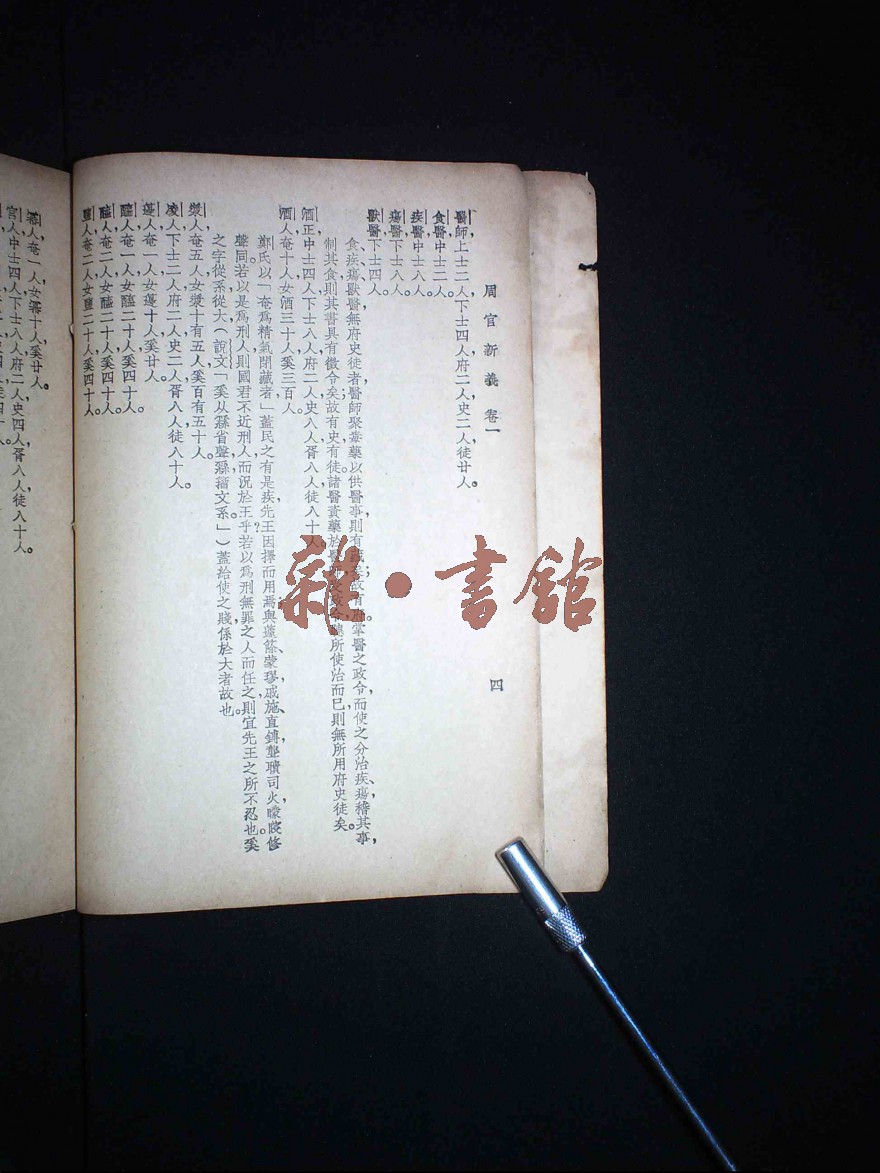 周官新義 卷一
四
醫師上士二人下士四人府二人史二人徒廿人。
食醫中士二人。
疾醫中士八人。
瘍醫下士八人。
獸醫下士四人。
食疾瘍獸醫無府史徒者醫師聚毒藥以供醫事則有 掌醫之政令而使之分治疾、瘍稽其事，
制其食則其書具有徵令矣；故有史有徒。諸醫資藥於醫 所使治而已則無所用府史徒矣。
酒正中士四人下士八人府二人史八人胥八人徒八十人。
酒人奄十人女酒三十人奚三百人。
鄭氏以「奄為精氣閉藏者」蓋民之有是疾先王因擇而用焉與籧篨、蒙璆、戚施、直鎛、聾聵司火矇瞍修
聲同。若以是為刑人則國君不近刑人，而況於王乎？若以為刑無罪之人而任之則宜先王之所不忍也。奚
之字從系從大，（說文「奚从繇省聲繇籀文系。」）蓋給使之賤，係於大者故也。
漿人奄五人，女漿十有五人，奚百有五十人。
凌人下士二人府二人史二人胥八人徒八十人。
籩人奄一人女籩十人奚廿人。
醢人奄一人女醢二十人奚四十人。
醯人奄二人女醯二十人奚四十人。
鹽人奄二人女鹽二十人奚四十人。
冪人奄一人女冪十人奚廿人。
宮人中士四人下士八人府二人史四人胥八人徒八十人。
雜·書館